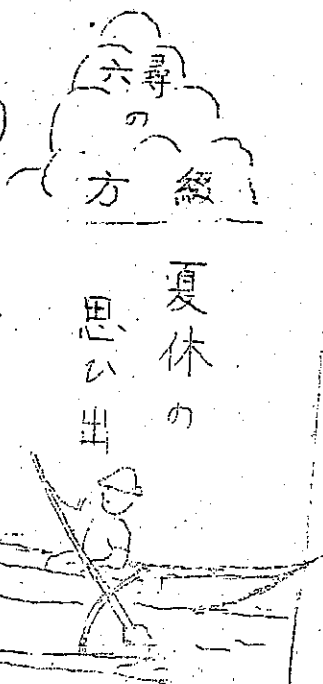 尋六
の
綴方
夏休の
思ひ出